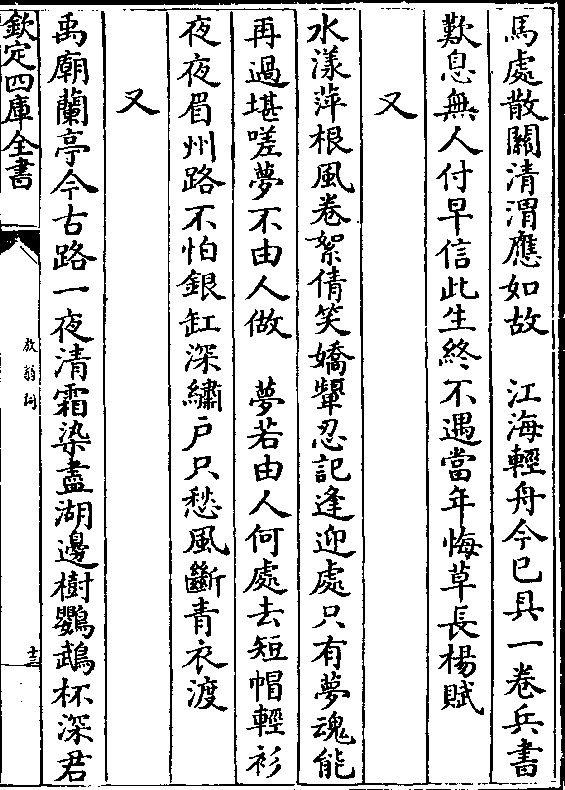 馬處散闗清渭應如故　江海輕舟今已具一卷兵書
歎息無人付早信此生終不遇當年悔草長楊賦
又
水漾萍根風卷絮倩笑嬌顰忍記逢迎處只有夢魂能
再過堪嗟夢不由人做　夢若由人何處去短帽輕衫
夜夜眉州路不怕銀缸深繡户只愁風斷青衣渡
又
禹廟蘭亭今古路一夜清霜染盡湖邊樹鸚鵡杯深君
欽定四庫全書
放翁詞
十三